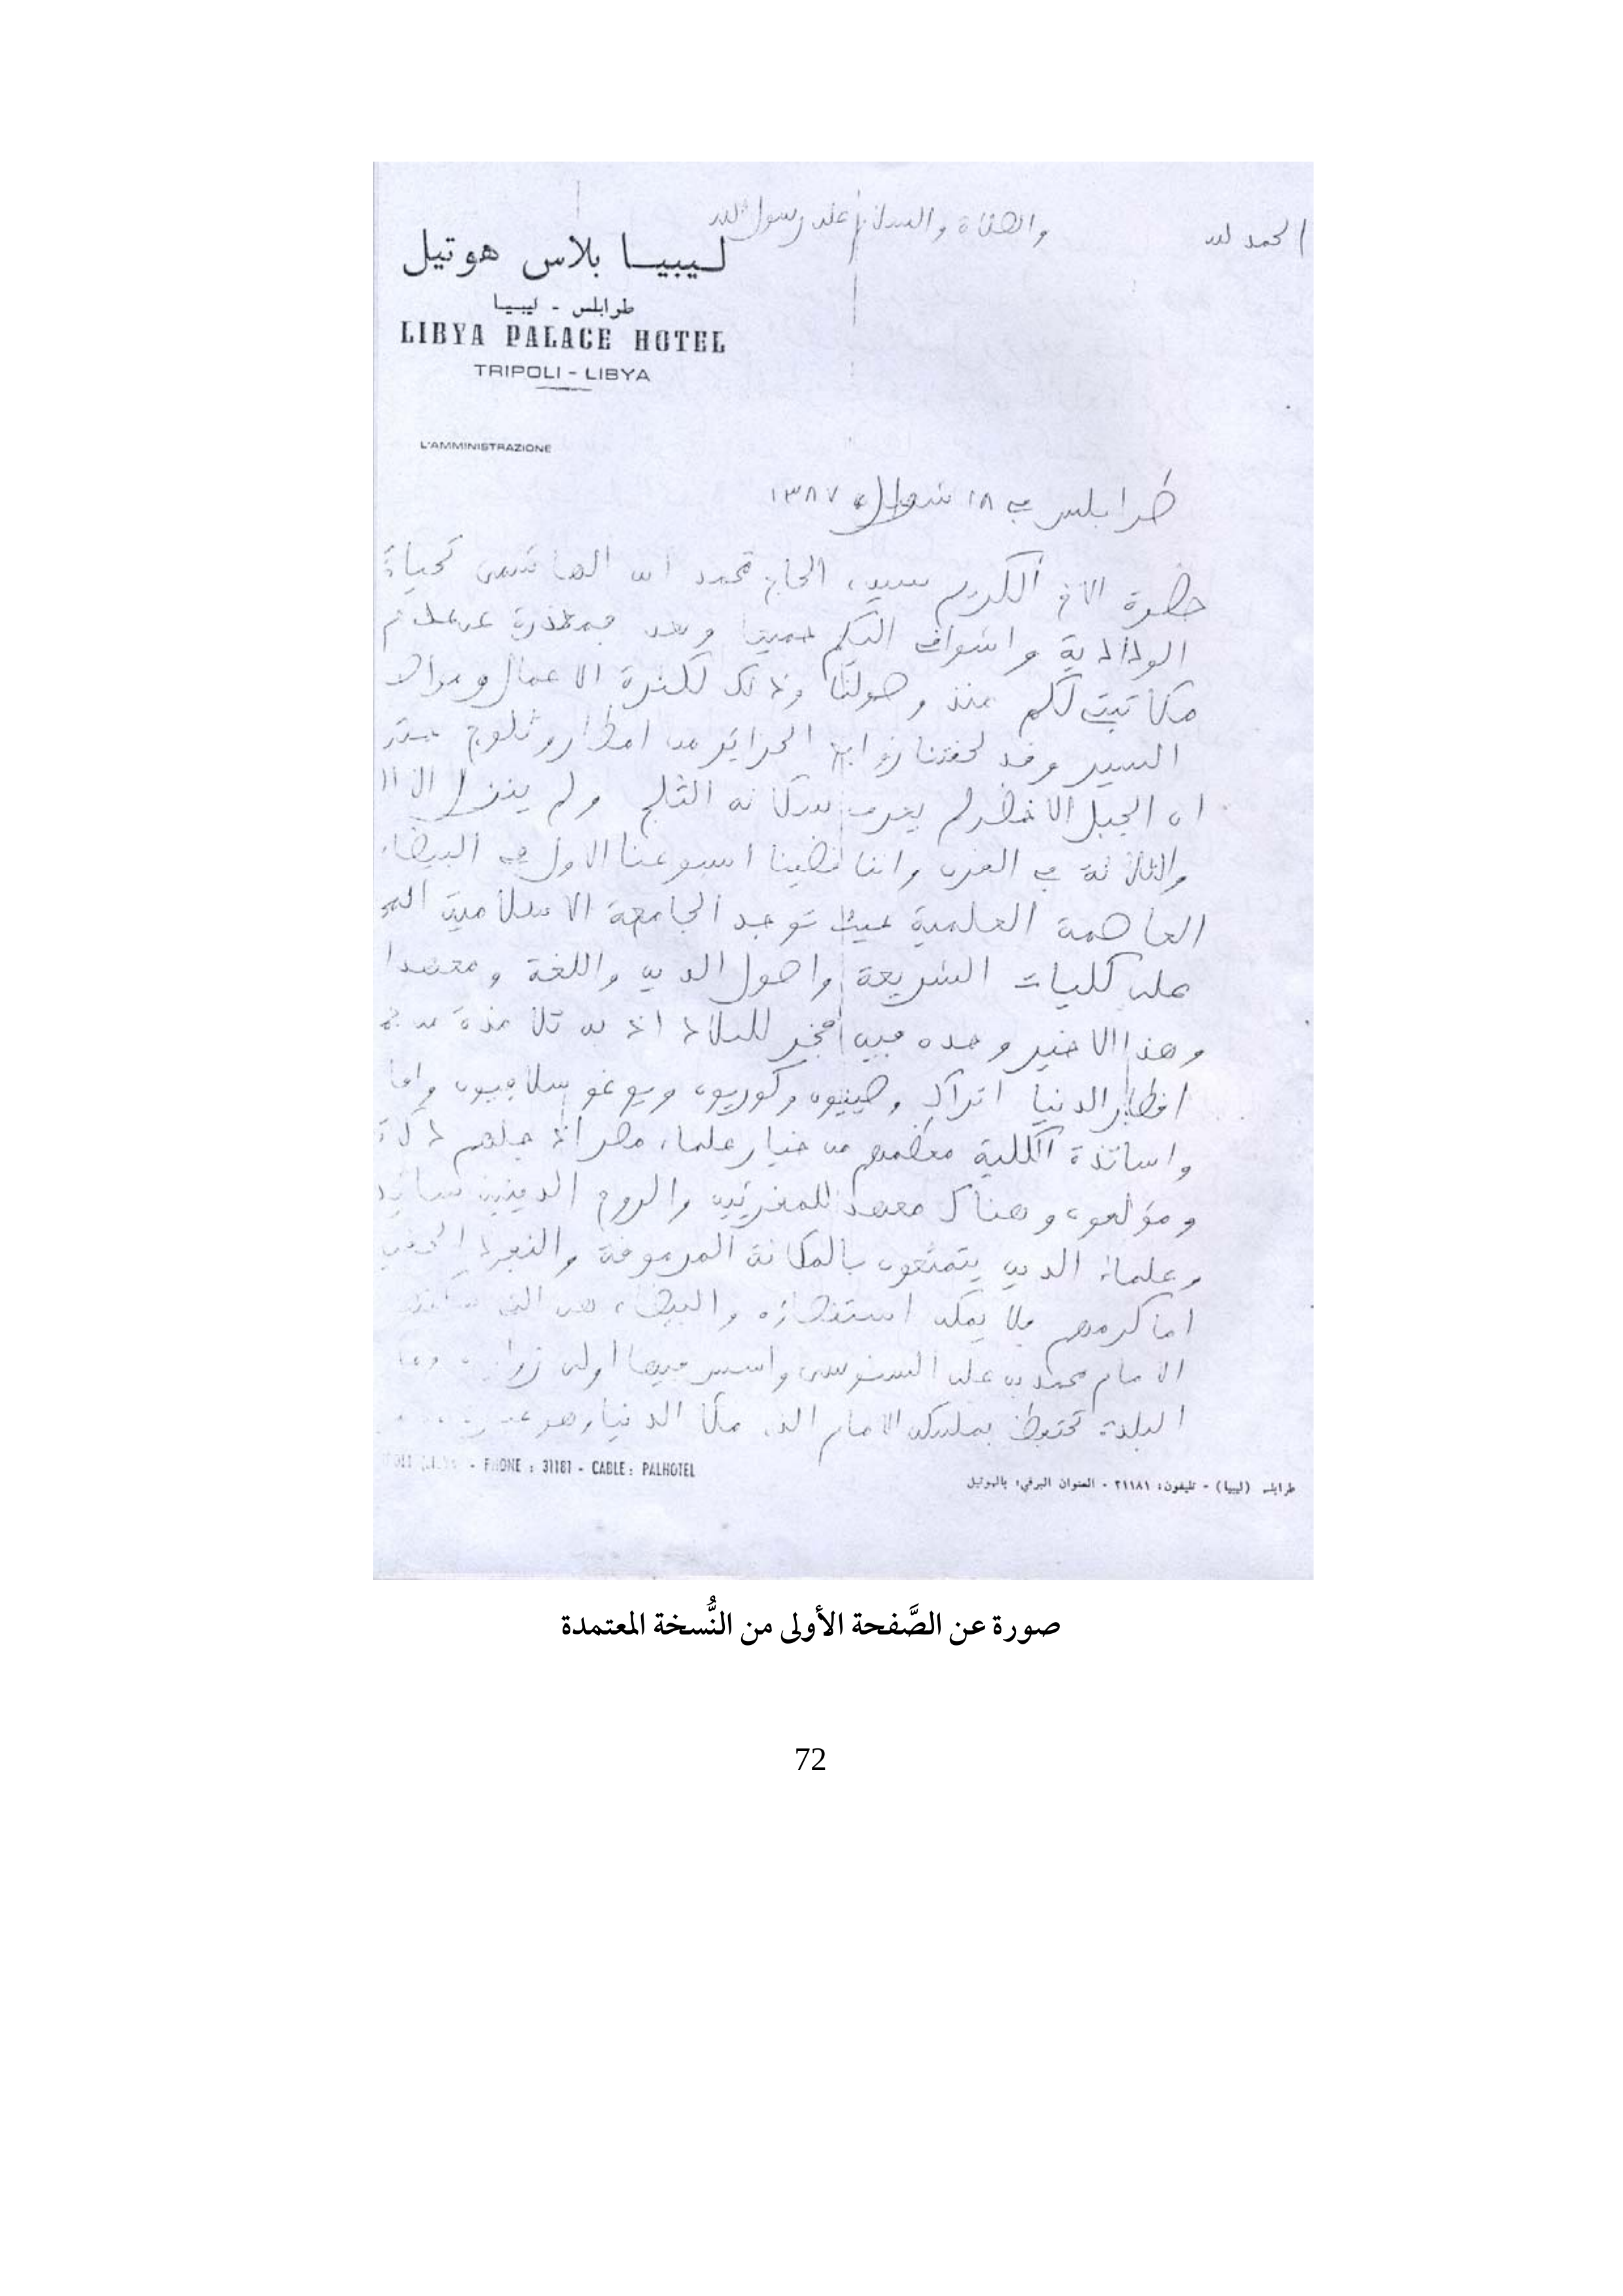 الحمد لله والصلاة والسلام على رسول الله
ليبيا بلاس هوتيل
طرابلس - ليبيا
LIBYA PALACE HOTEL
TRIPOLI - LIBYA
L'AMMINISTRAZIONE
طرابلس في ١٨ شوال ١٣٨٧
حضرة الاخ الكريم سيدي الحاج محمد الهاشمي تحياتي
الودادية واشواقي اليكم جميعا وبعد فمعذرة عن عدم
مكاتبتي لكم منذ وصولنا وذلك لكثرة الاعمال وموالاة
السير وقد لحقتنا زوابع الجزائر من امطار وثلوج
ان الجبل الاخضر لم يعرف سكانه الثلج ولم ينزل الا
والثلاثة في القرن واننا قضينا اسبوعنا الاول في البيضاء
العاصمة العلمية حيث توجد الجامعة الاسلامية
على كليات الشريعة واصول الدين واللغة ومعهدا
وهذا الاخير وحده فيه فخر للبلاد اذ تلامذة من
اقطار الدنيا اتراك وصينيون وكوريون ويوغوسلافيون
واساتذة الكلية معظمهم من خيار علماء مصر اذ جلهم دكاترة
ومؤلفون وهناك معهد للمقرئين والروح الدينية
وعلماء الدين يتمتعون بالمكانة المرموقة والنفوذ الحقيقي
اما كرمهم فلا يمكن استقصاؤه والبيضاء هي التي
الامام محمد بن علي السنوسي واسس فيها اولى
البلدة تحتفظ بمسكن الامام الذي ملأ الدنيا وهو
- PHONE : 31181 - CABLE : PALHOTEL
طرابلس (ليبيا) - تليفون: ٣١١٨١ - العنوان البرقي: بالهوتيل
صورة عن الصَّفحة الأولى من النُّسخة المعتمدة
72